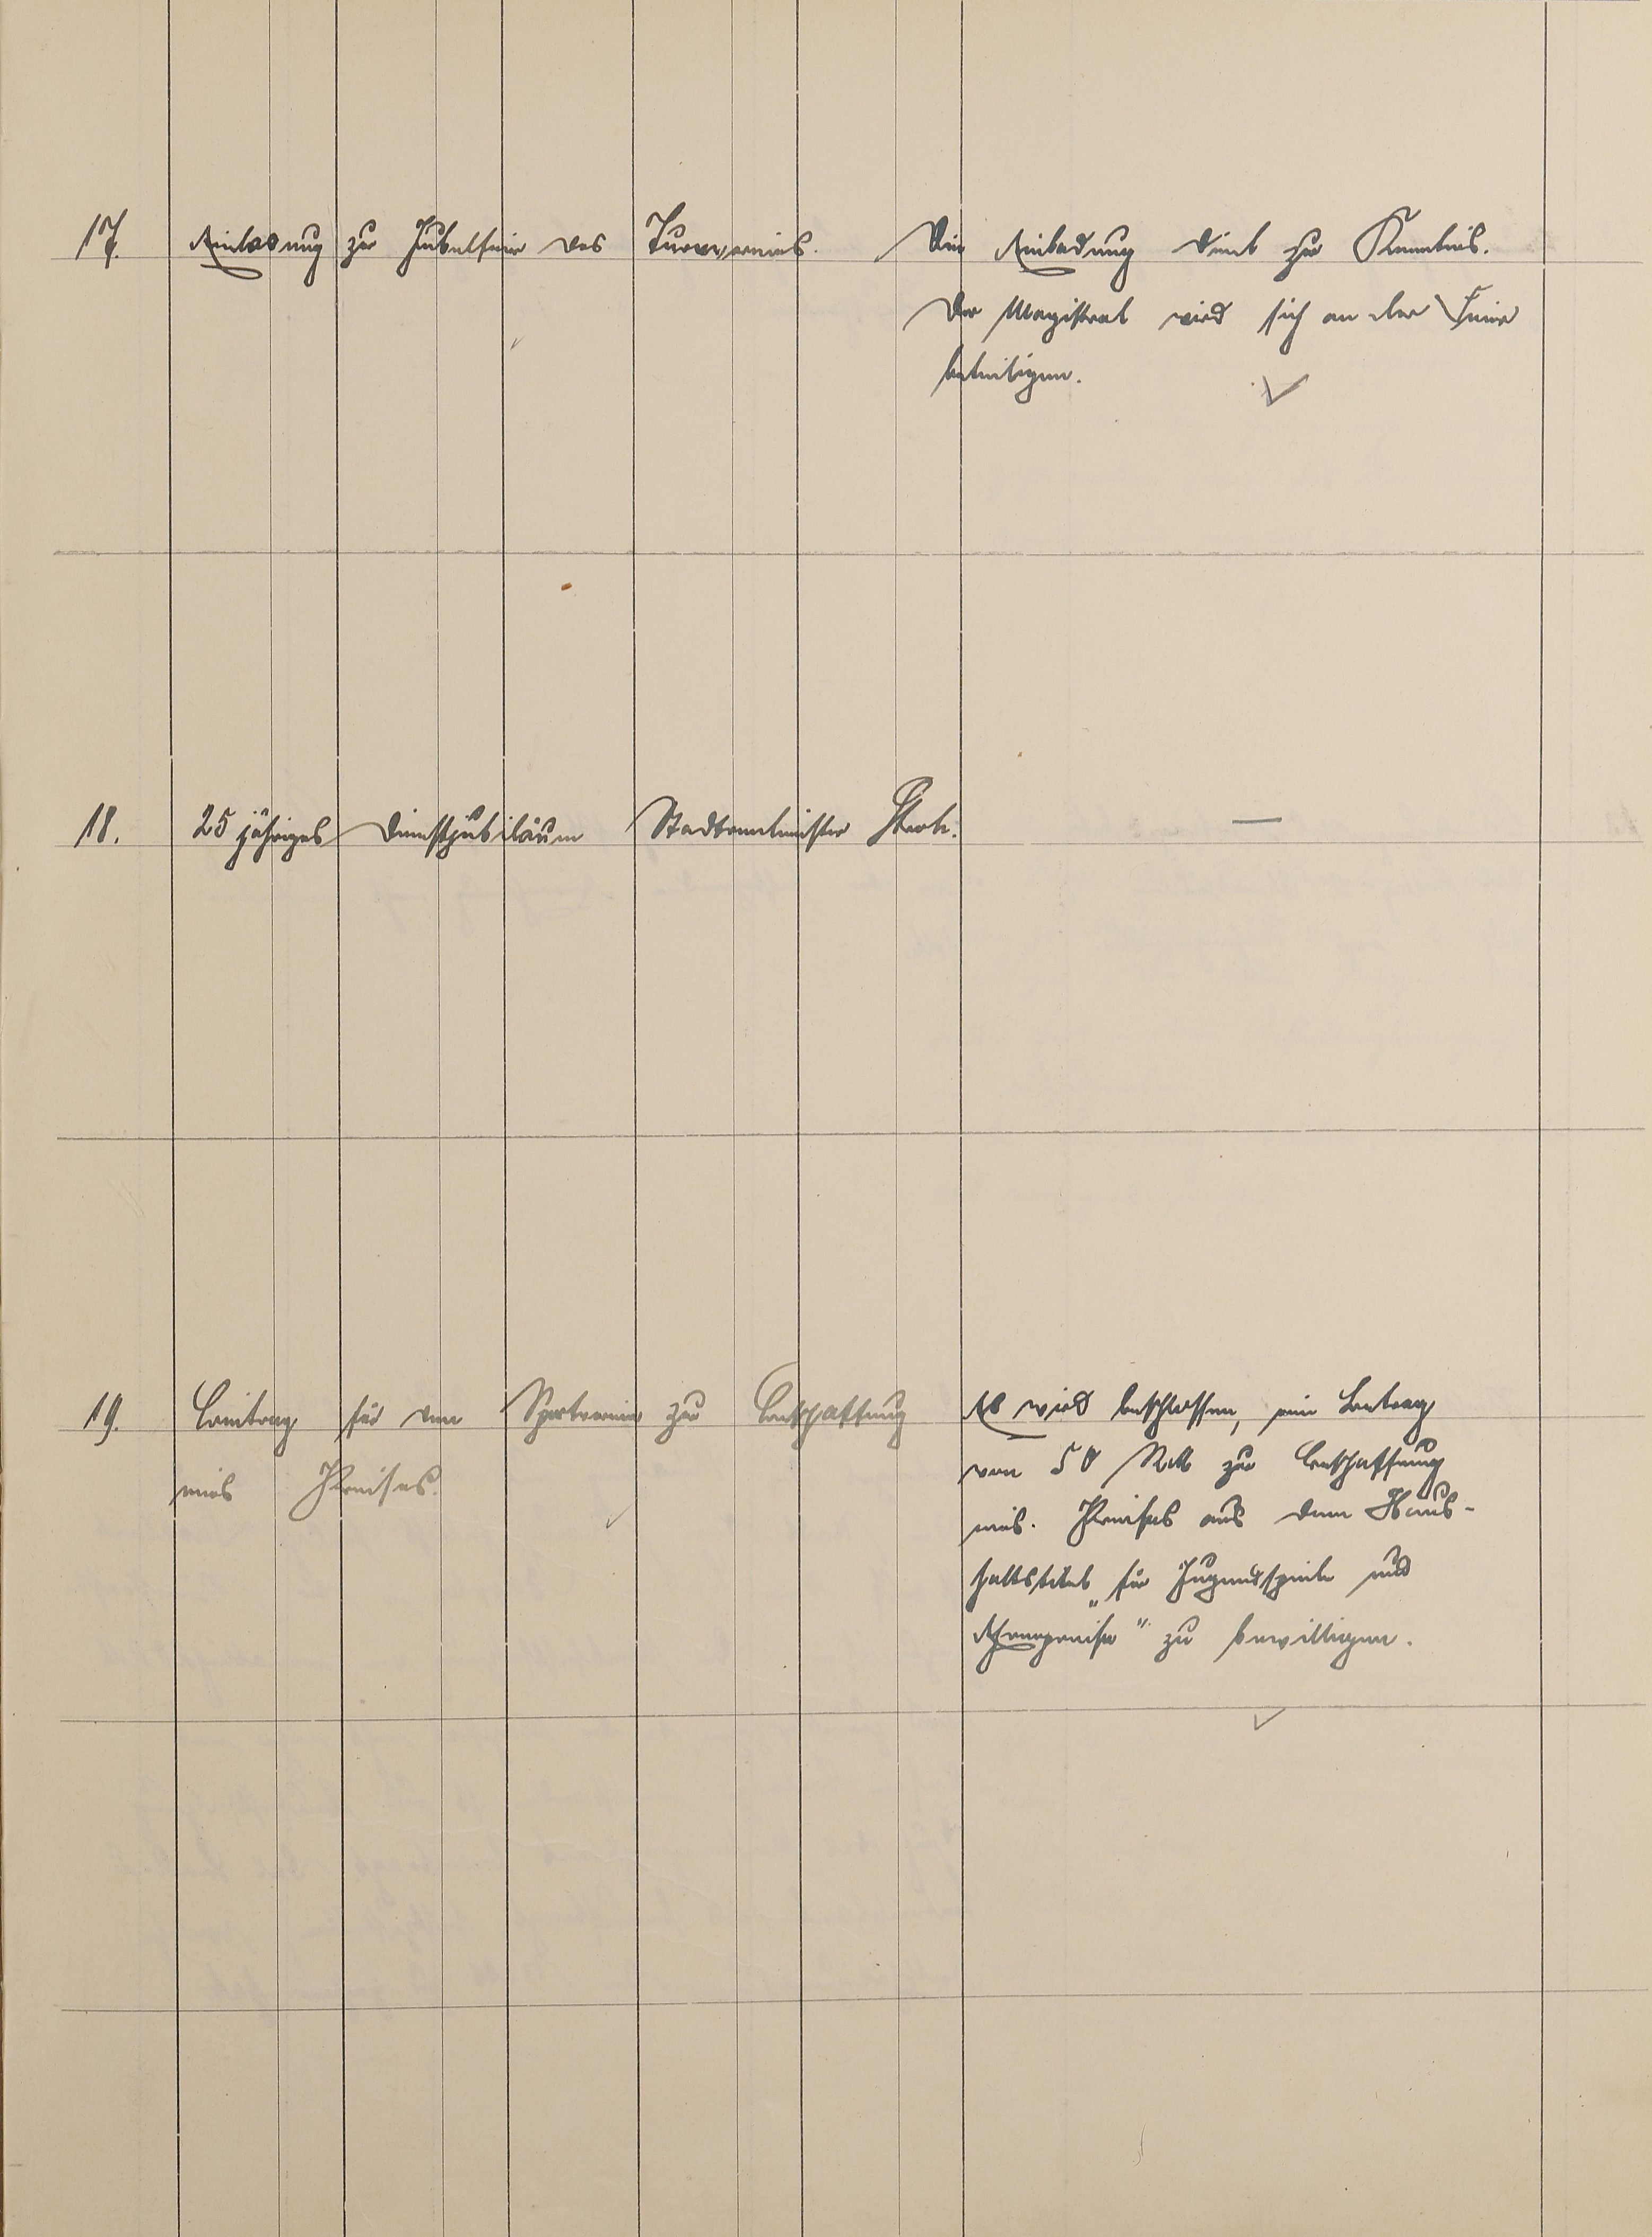 17. Einladung zur Jubelfeier des Turnvereins.
Die Einladung dient zur Kenntnis.
Der Magistrat wird sich an der Feier
beteiligen.
18. 25 jähriges Dienstjubiläum Stadtrentmeister
—
19. Beitrag für den Sportverein zur Beschaffung
eines Preises.
Es wird beschlossen, ein Betrag
von 50 RM zur Beschaffung
eines Preises aus dem Haus-
haltstitel „für Jugendspiele und
Ehrenpreise“ zu bewilligen.